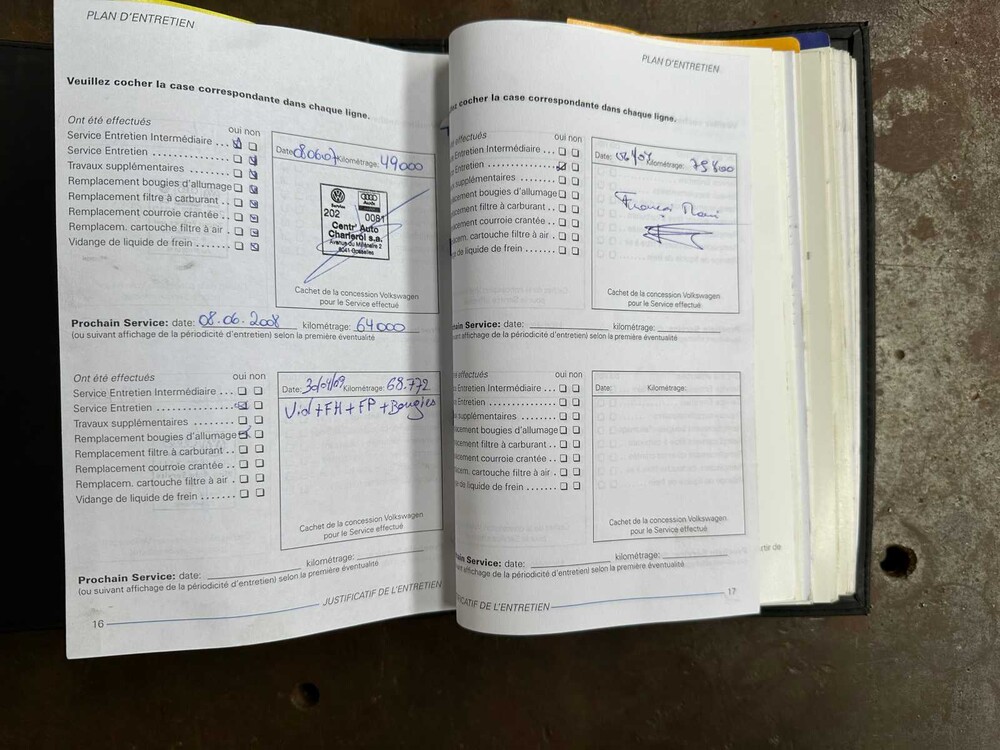 PLAN D'ENTRETIEN
Veuillez cocher la case correspondante dans chaque ligne.
Ont été effectués oui non
Service Entretien Intermédiaire ...
Service Entretien ................
Travaux supplémentaires .......
Remplacement bougies d'allumage
Remplacement filtre à carburant .
Remplacement courroie crantée ..
Remplacem. cartouche filtre à air .
Vidange de liquide de frein .......
Date: 080607 Kilométrage: 49000
Service
Audi
202 0081
Centr' Auto
Charleroi s.a.
Avenue du Millénaire 2
6041 Gosselies
Cachet de la concession Volkswagen
pour le Service effectué
Prochain Service: date: 08.06.2008 kilométrage: 64000
(ou suivant affichage de la périodicité d'entretien) selon la première éventualité
Ont été effectués oui non
Service Entretien Intermédiaire ...
Service Entretien ................
Travaux supplémentaires .......
Remplacement bougies d'allumage
Remplacement filtre à carburant ..
Remplacement courroie crantée ..
Remplacem. cartouche filtre à air .
Vidange de liquide de frein .......
Date: 30/01/09 Kilométrage: 68.772
Vid + FH + FP + Bougies
Cachet de la concession Volkswagen
pour le Service effectué
Prochain Service: date: kilométrage:
(ou suivant affichage de la périodicité d'entretien) selon la première éventualité
JUSTIFICATIF DE L'ENTRETIEN
16
PLAN D'ENTRETIEN
cocher la case correspondante dans chaque ligne.
effectués oui non
Entretien Intermédiaire ...
Entretien ................
supplémentaires .......
cement bougies d'allumage
cement filtre à carburant ..
cement courroie crantée ..
cem. cartouche filtre à air .
de liquide de frein .......
Date: Kilométrage:
Cachet de la concession Volkswagen
pour le Service effectué
chain Service: date: kilométrage:
suivant affichage de la périodicité d'entretien) selon la première éventualité
effectués oui non
Entretien Intermédiaire ...
Entretien ................
supplémentaires .......
cement bougies d'allumage
cement filtre à carburant ..
cement courroie crantée ..
cem. cartouche filtre à air .
de liquide de frein .......
Date: Kilométrage:
Cachet de la concession Volkswagen
pour le Service effectué
Service: date: kilométrage:
affichage de la périodicité d'entretien) selon la première éventualité
CATIF DE L'ENTRETIEN
17